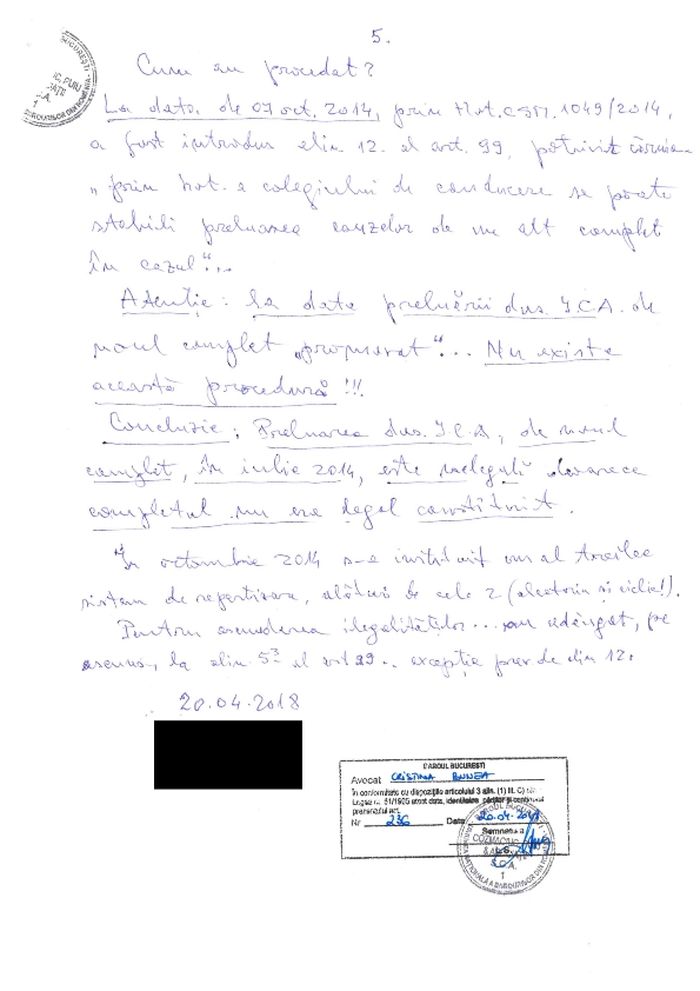 5.
BUCUREȘTI
Cum au procedat?
La data de 07 oct. 2014, prin Hot. CSM. 1049/2014,
a fost introdus alin. 12. al art. 99, potrivit căruia
„prin hot. a colegiului de conducere se poate
stabili preluarea cauzelor de un alt complet
în cazul"...
Atenție: la data preluării dos. I.C.A. de
noul complet „propusesat"... Nu exista
această procedură!!!
Concluzie: Preluarea dos. ICA, de noul
complet, în iulie 2014, este nelegală deoarece
completul nu era legal constituit.
În octombrie 2014 s-a instituit un al treilea
sistem de repartizare, alături de cele 2 (aleatoriu și ciclic!).
Pentru ascunderea ilegalităților... au adăugat, pe
ascuns, la alin. 5³ al art 99.. excepția prev de alin 12.
20.04.2018
BAROUL BUCUREȘTI
Avocat CRISTINA
În conformitate cu dispozițiile articolului 3 alin. (1) lit. C) din
Legea nr. 51/1995 atest data, identitatea părților și conținutul
prezentului act.
Nr 236 Data 20.04.2018
Semnatura
L.S.